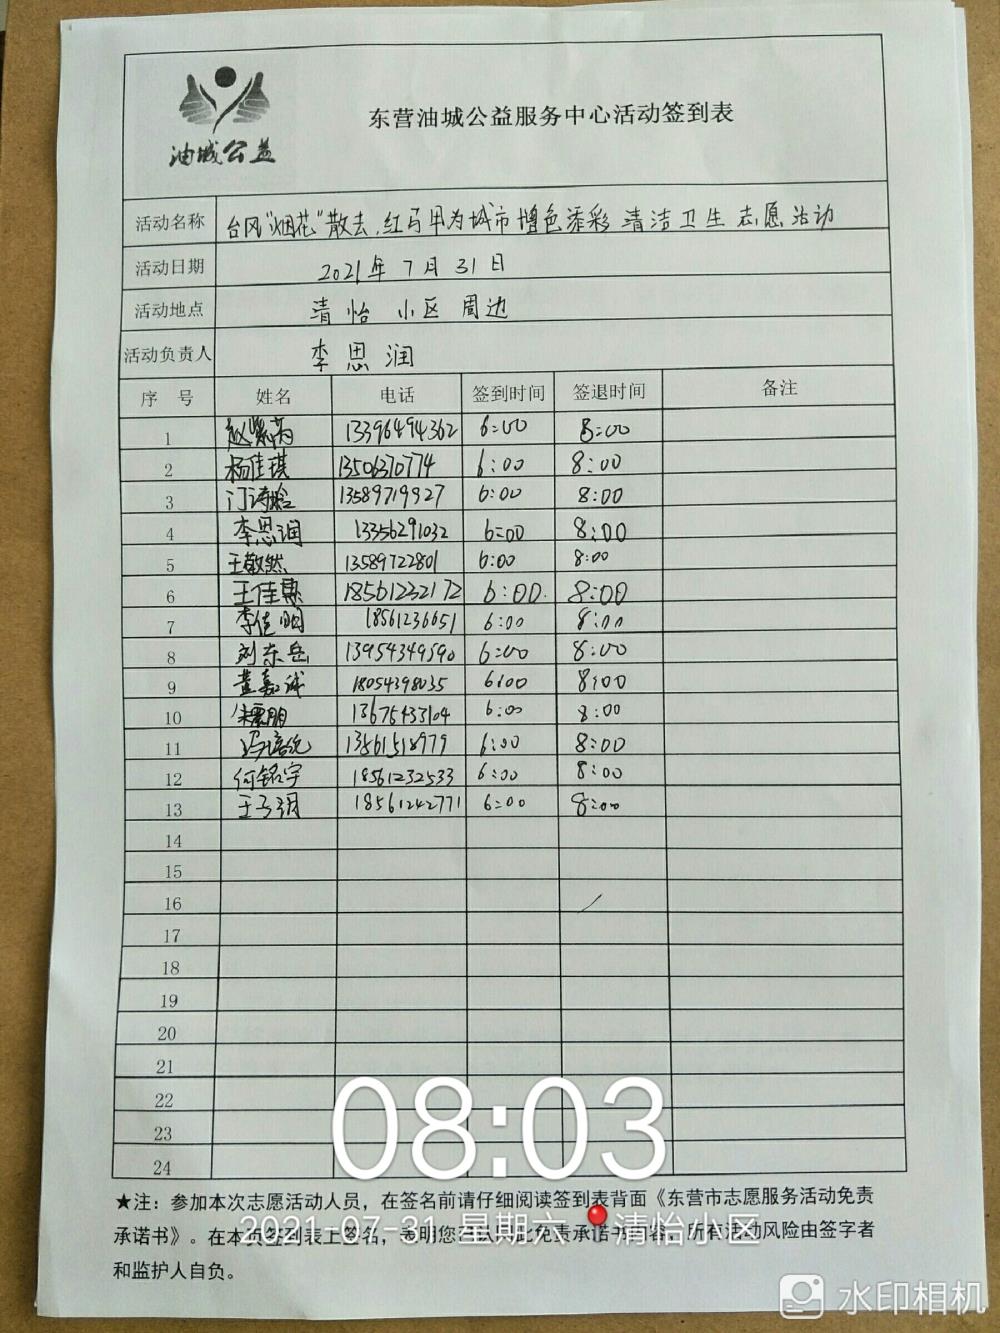 油城公益
东营油城公益服务中心活动签到表
活动名称 台风"烟花"散去,红马甲为城市增色添彩 清洁卫生志愿活动
活动日期 2021年7月31日
活动地点 清怡小区周边
活动负责人 李思润
序号 姓名 电话 签到时间 签退时间 备注
1 13396494362 6:00 8:00
2 杨佳琪 13506370774 6:00 8:00
3 13589719927 6:00 8:00
4 李思润 13356291032 6:00 8:00
5 王敬然 13589722801 6:00 8:00
6 王佳 18561232172 6:00 8:00
7 李佳 18561236651 6:00 8:00
8 刘东岳 13954349590 6:00 8:00
9 董嘉诚 18054398035 6:00 8:00
10 13675433104 6:00 8:00
11 13561518979 6:00 8:00
12 何铭宇 18561232533 6:00 8:00
13 王子玥 18561242771 6:00 8:00
14
15
16
17
18
19
20
21
22
23
24
08:03
★注：参加本次志愿活动人员，在签名前请仔细阅读签到表背面《东营市志愿服务活动免责
承诺书》。在本页签到表上签名，表明您已认同此免责承诺书内容，所有活动风险由签字者
2021-07-31 星期六 清怡小区
和监护人自负。
水印相机